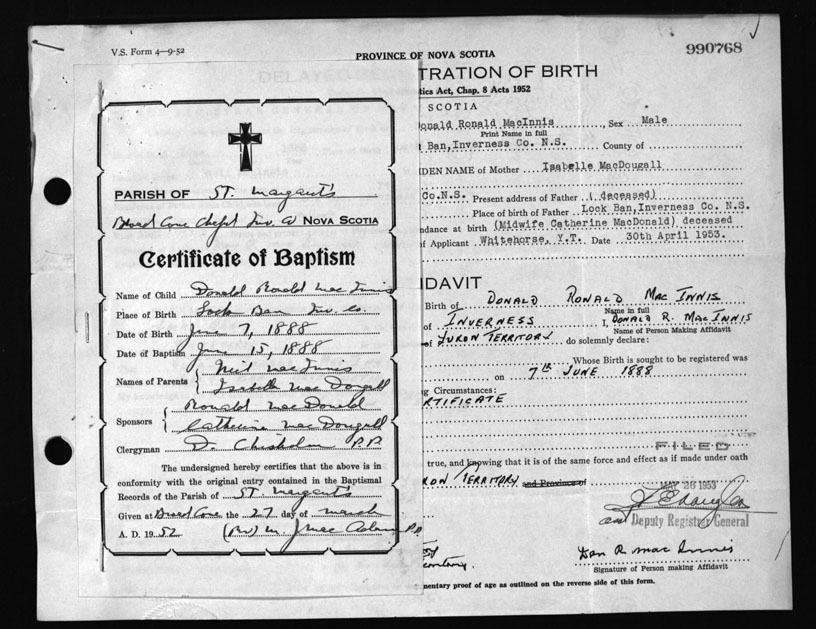 V.S. Form 4—9-52
PROVINCE OF NOVA SCOTIA
990768
TRATION OF BIRTH
tics Act, Chap. 8 Acts 1952
SCOTIA
onald Ronald MacInnis, Sex Male
Print Name in full
t Ban, Inverness Co. N.S. County of
IDEN NAME of Mother Isabelle MacDougall
Co.N.S. Present address of Father (deceased)
Place of birth of Father Lock Ban, Inverness Co. N.S.
ndance at birth (Midwife Catherine MacDonald) deceased
of Applicant Whitehorse, Y.T. Date 30th April 1953.
IDAVIT
Birth of DONALD RONALD MAC INNIS
Name in full
of INVERNESS I, DONALD R. MAC INNIS
Name of Person Making Affidavit
of YUKON TERRITORY do solemnly declare:
Whose Birth is sought to be registered was
on 7th JUNE 1888
ng Circumstances:
RTIFICATE
FILED
true, and knowing that it is of the same force and effect as if made under oath
KON TERRITORY and Province of
MAY 26 1953
and Deputy Registrar General
Dan R Mac Innis
Signature of Person making Affidavit
mentary proof of age as outlined on the reverse side of this form.
PARISH OF St. Margaret's
Broad Cove Chapel Inv. Co NOVA SCOTIA
Certificate of Baptism
Name of Child Donald Ronald Mac Innis
Place of Birth Loch Ban Inv. Co.
Date of Birth June 7, 1888
Date of Baptism June 15, 1888
Names of Parents { Neil Mac Innis
Isabella Mac Dougall
Sponsors { Ronald Mac Donald
Catherine Mac Dougall
Clergyman D. Chisholm P.P.
The undersigned hereby certifies that the above is in
conformity with the original entry contained in the Baptismal
Records of the Parish of St. Margaret's
Given at Broad Cove the 27 day of March
A. D. 1952 (Rev) M. J Mac Adam P.P.